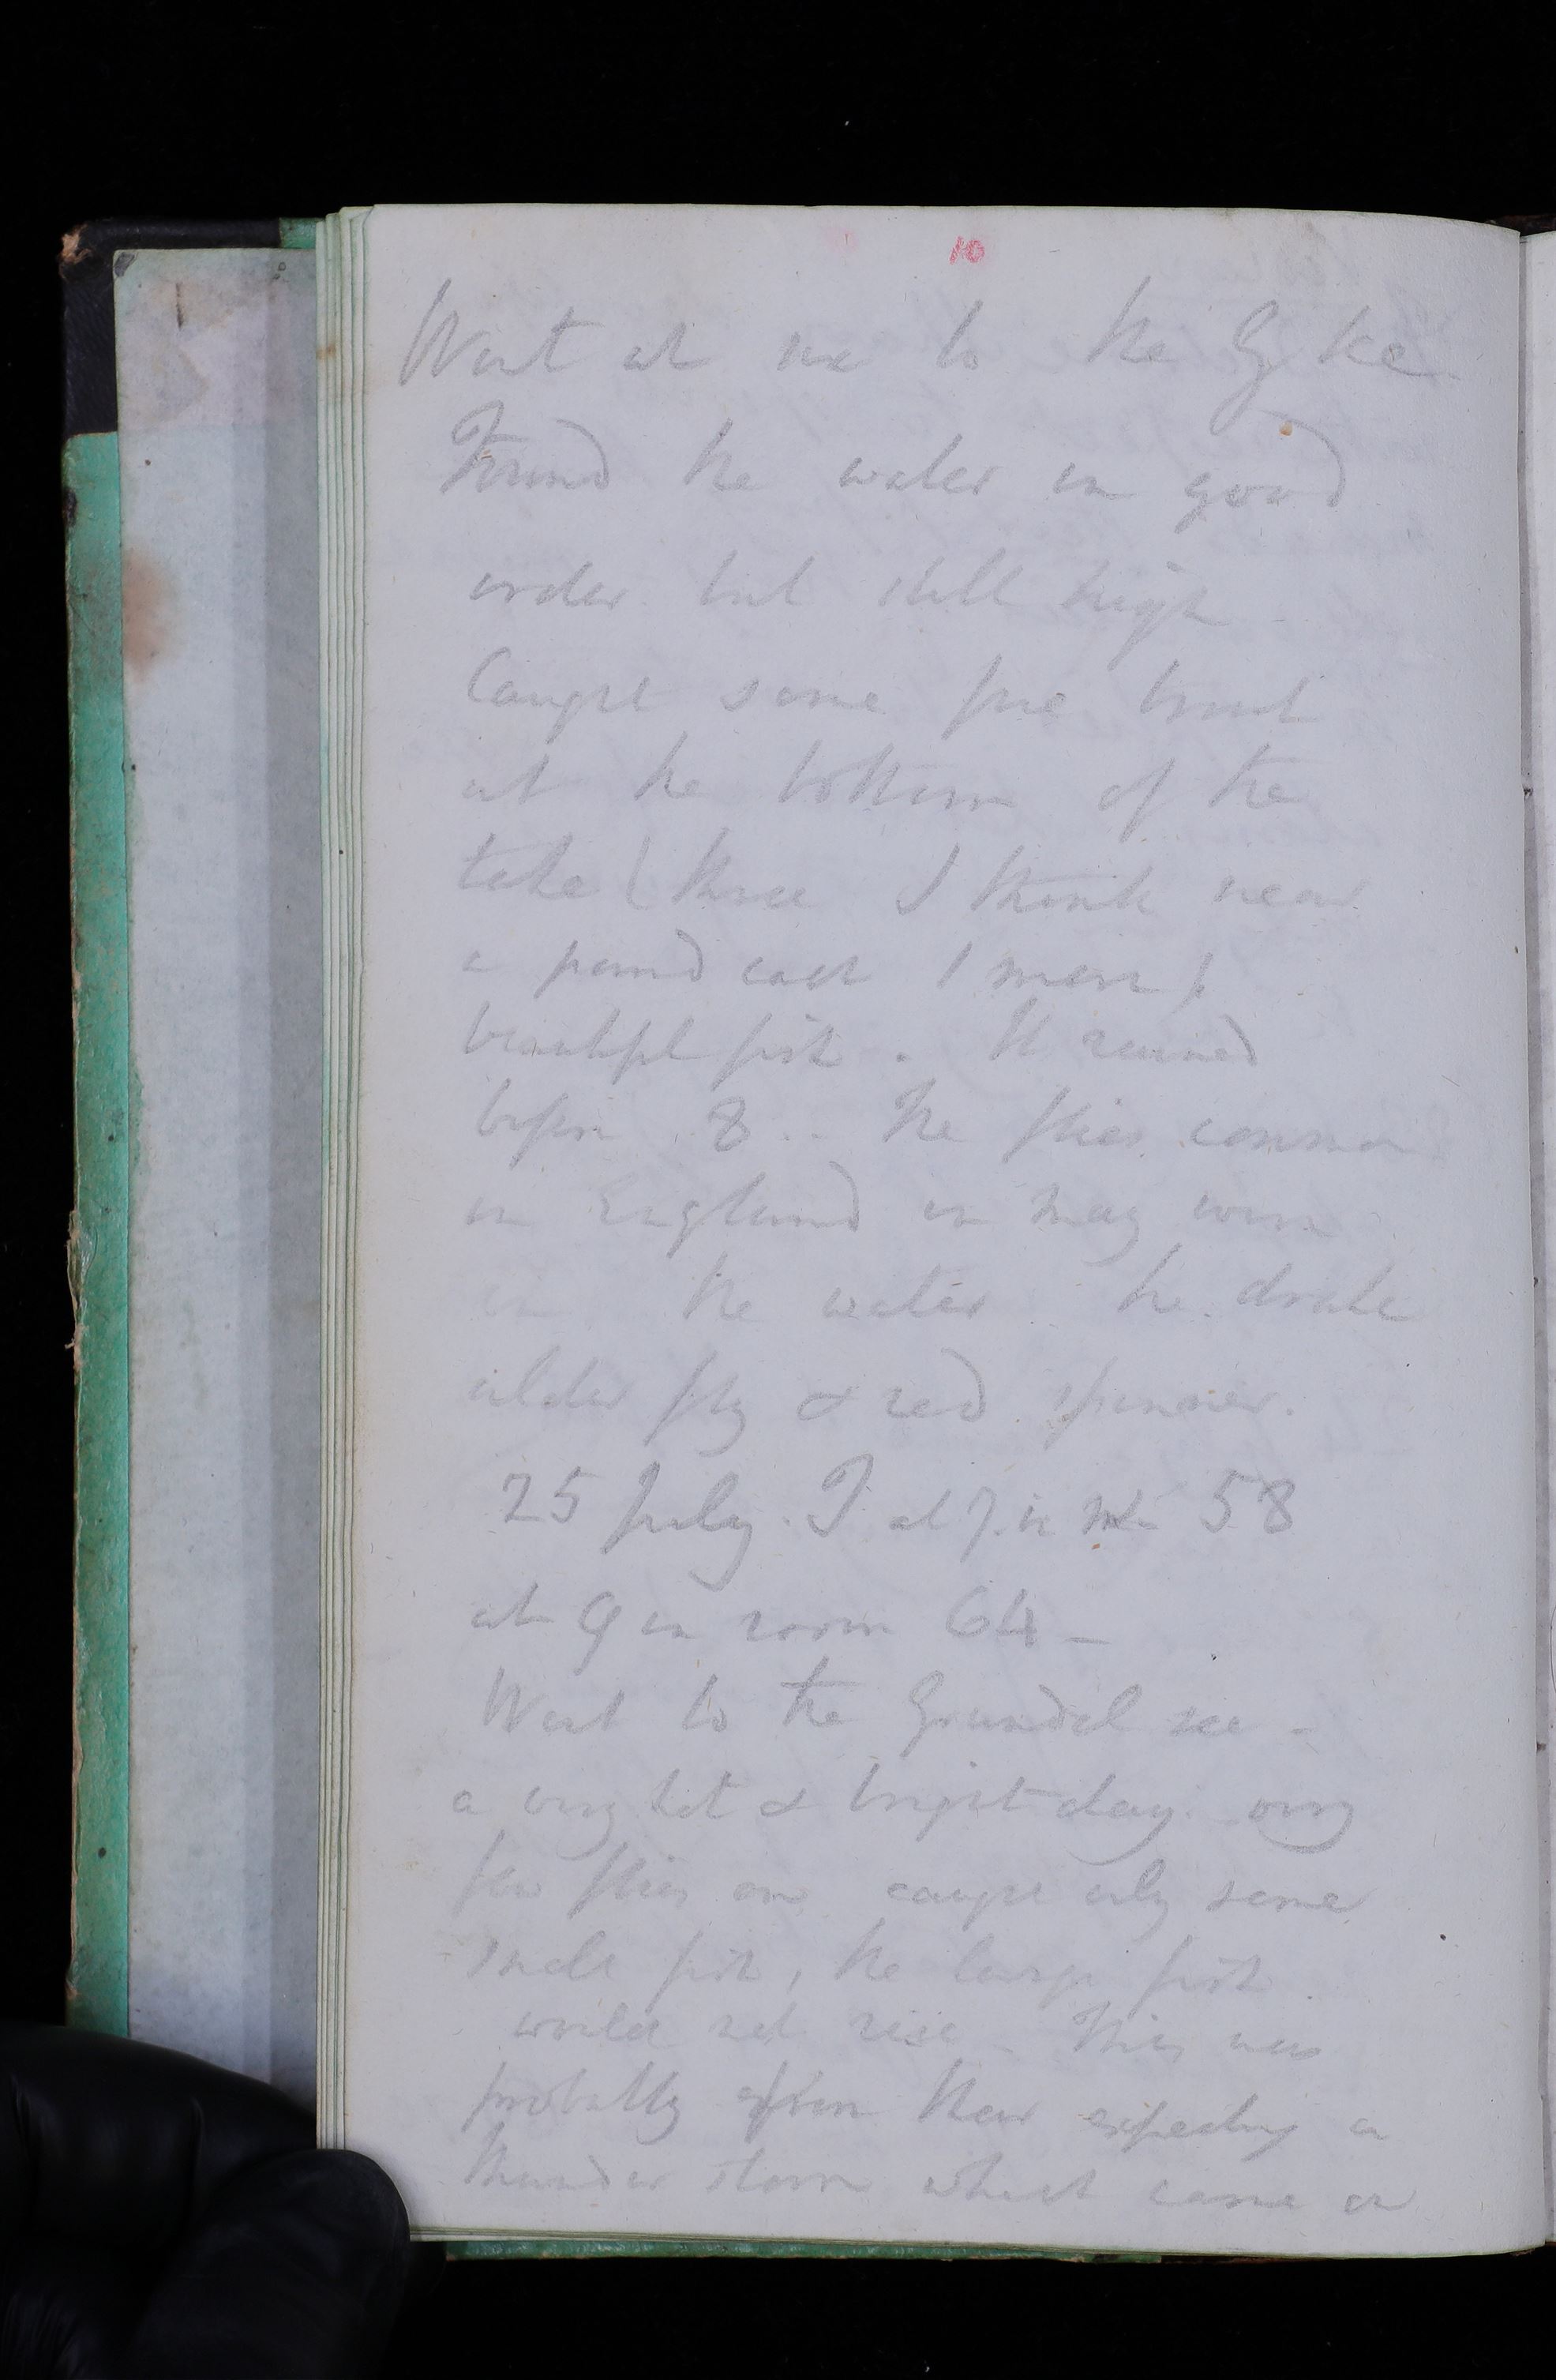 10
Went at six to the
Found the water in good
order but still high
Caught some fine trout
at the bottom of the
lake (three I think near
a pound each / more)
beautiful fish. It rained
before 8.. The flies common
in England in May were
on the water the drake
alder fly & red spinner.
25 July. T at 7. in 58
at 9 in room 64 –
Went to the Grundel see –
a very hot & bright day. very
few flies on caught only some
small fish, the large fish
would not rise – This was
probably from their expecting a
thunder storm which came on